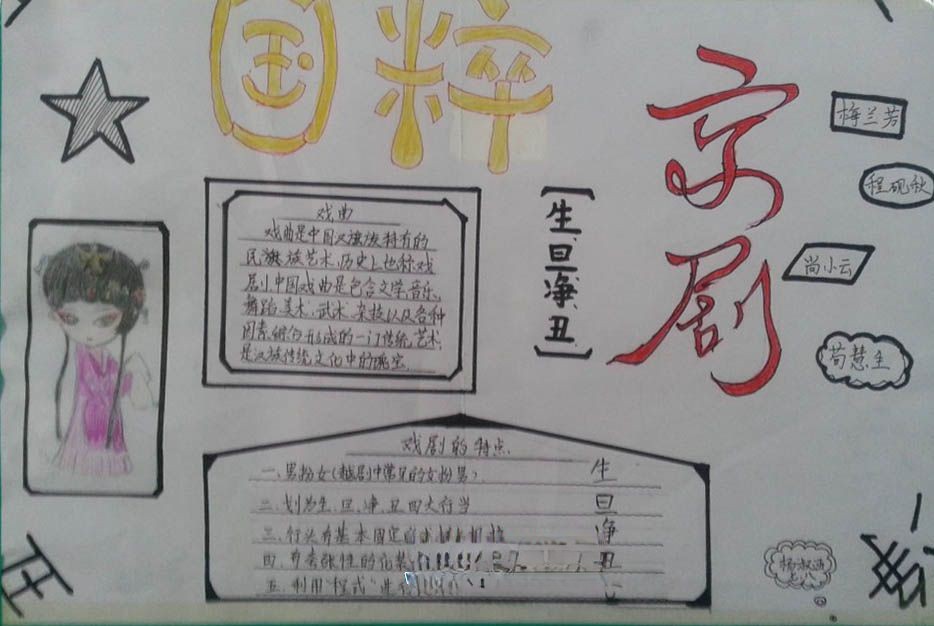 国粹
京剧
梅兰芳
程砚秋
尚小云
荀慧生
【生旦净丑】
戏曲
戏曲是中国汉族族特有的
民族族艺术,历史上也称戏
剧.中国戏曲是包含文学.音乐.
舞蹈.美术.武术.杂技以及各种
因素综合而成的一门传统艺术,
是汉族传统文化中的瑰宝.
戏剧的特点
一.男扮女(越剧中常见的女扮男)
二.划为生.旦.净.丑四大行当
三.行头有基本固定
四.有夸张性的化装
五.利用"程式"进
生
旦
净
丑